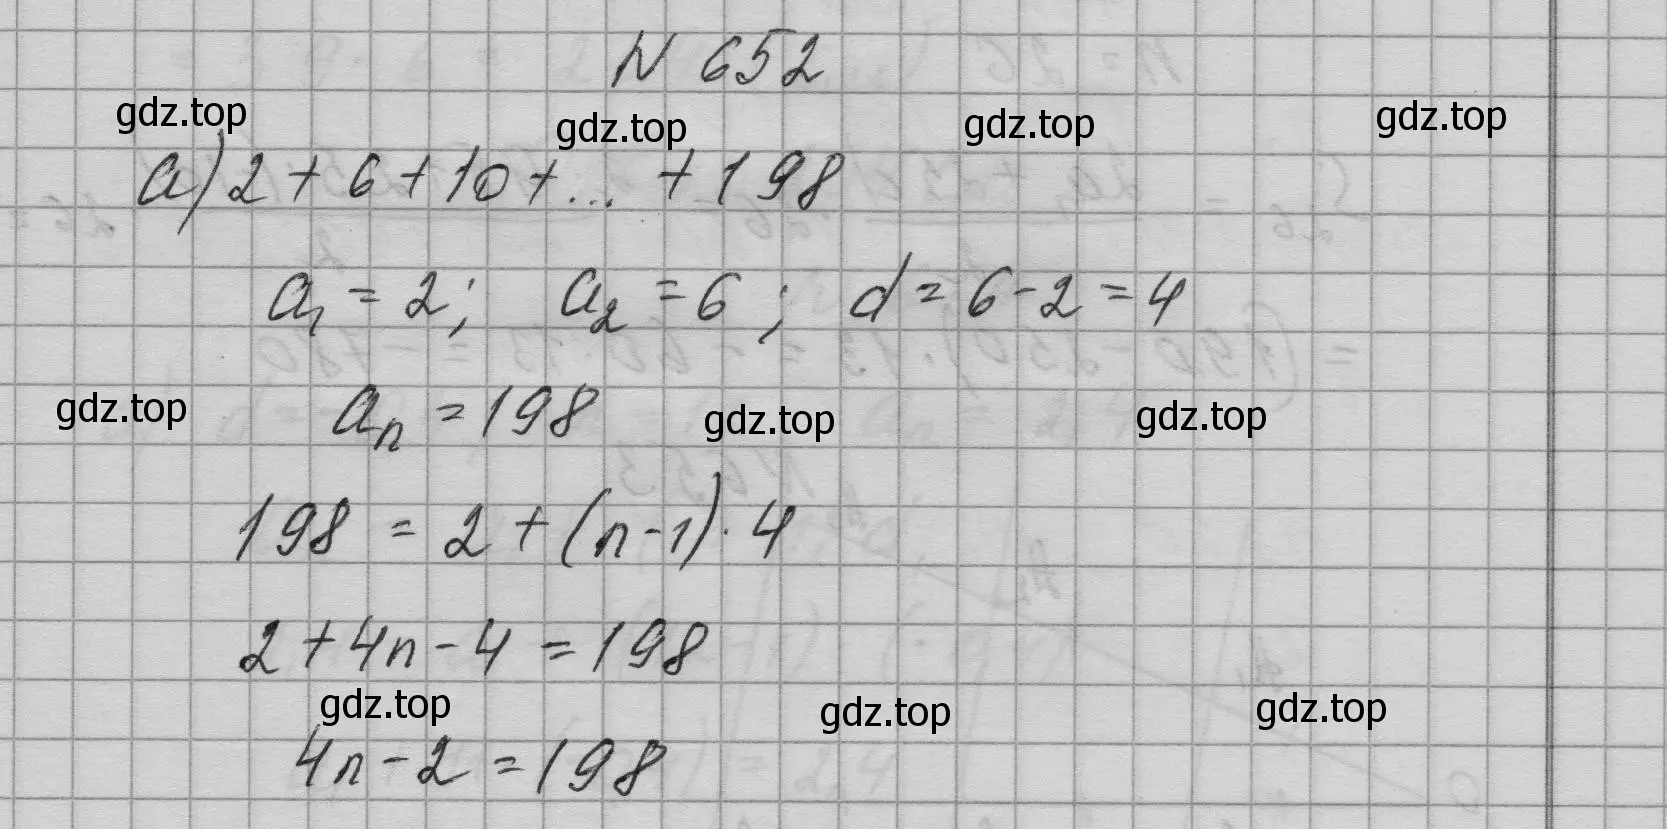 N 652
gdz.top gdz.top gdz.top gdz.top
а) 2 + 6 + 10 + ... + 198
a₁ = 2; a₂ = 6; d = 6 - 2 = 4
gdz.top aₙ = 198 gdz.top gdz.top
198 = 2 + (n - 1) · 4
2 + 4n - 4 = 198
gdz.top gdz.top gdz.top
4n - 2 = 198